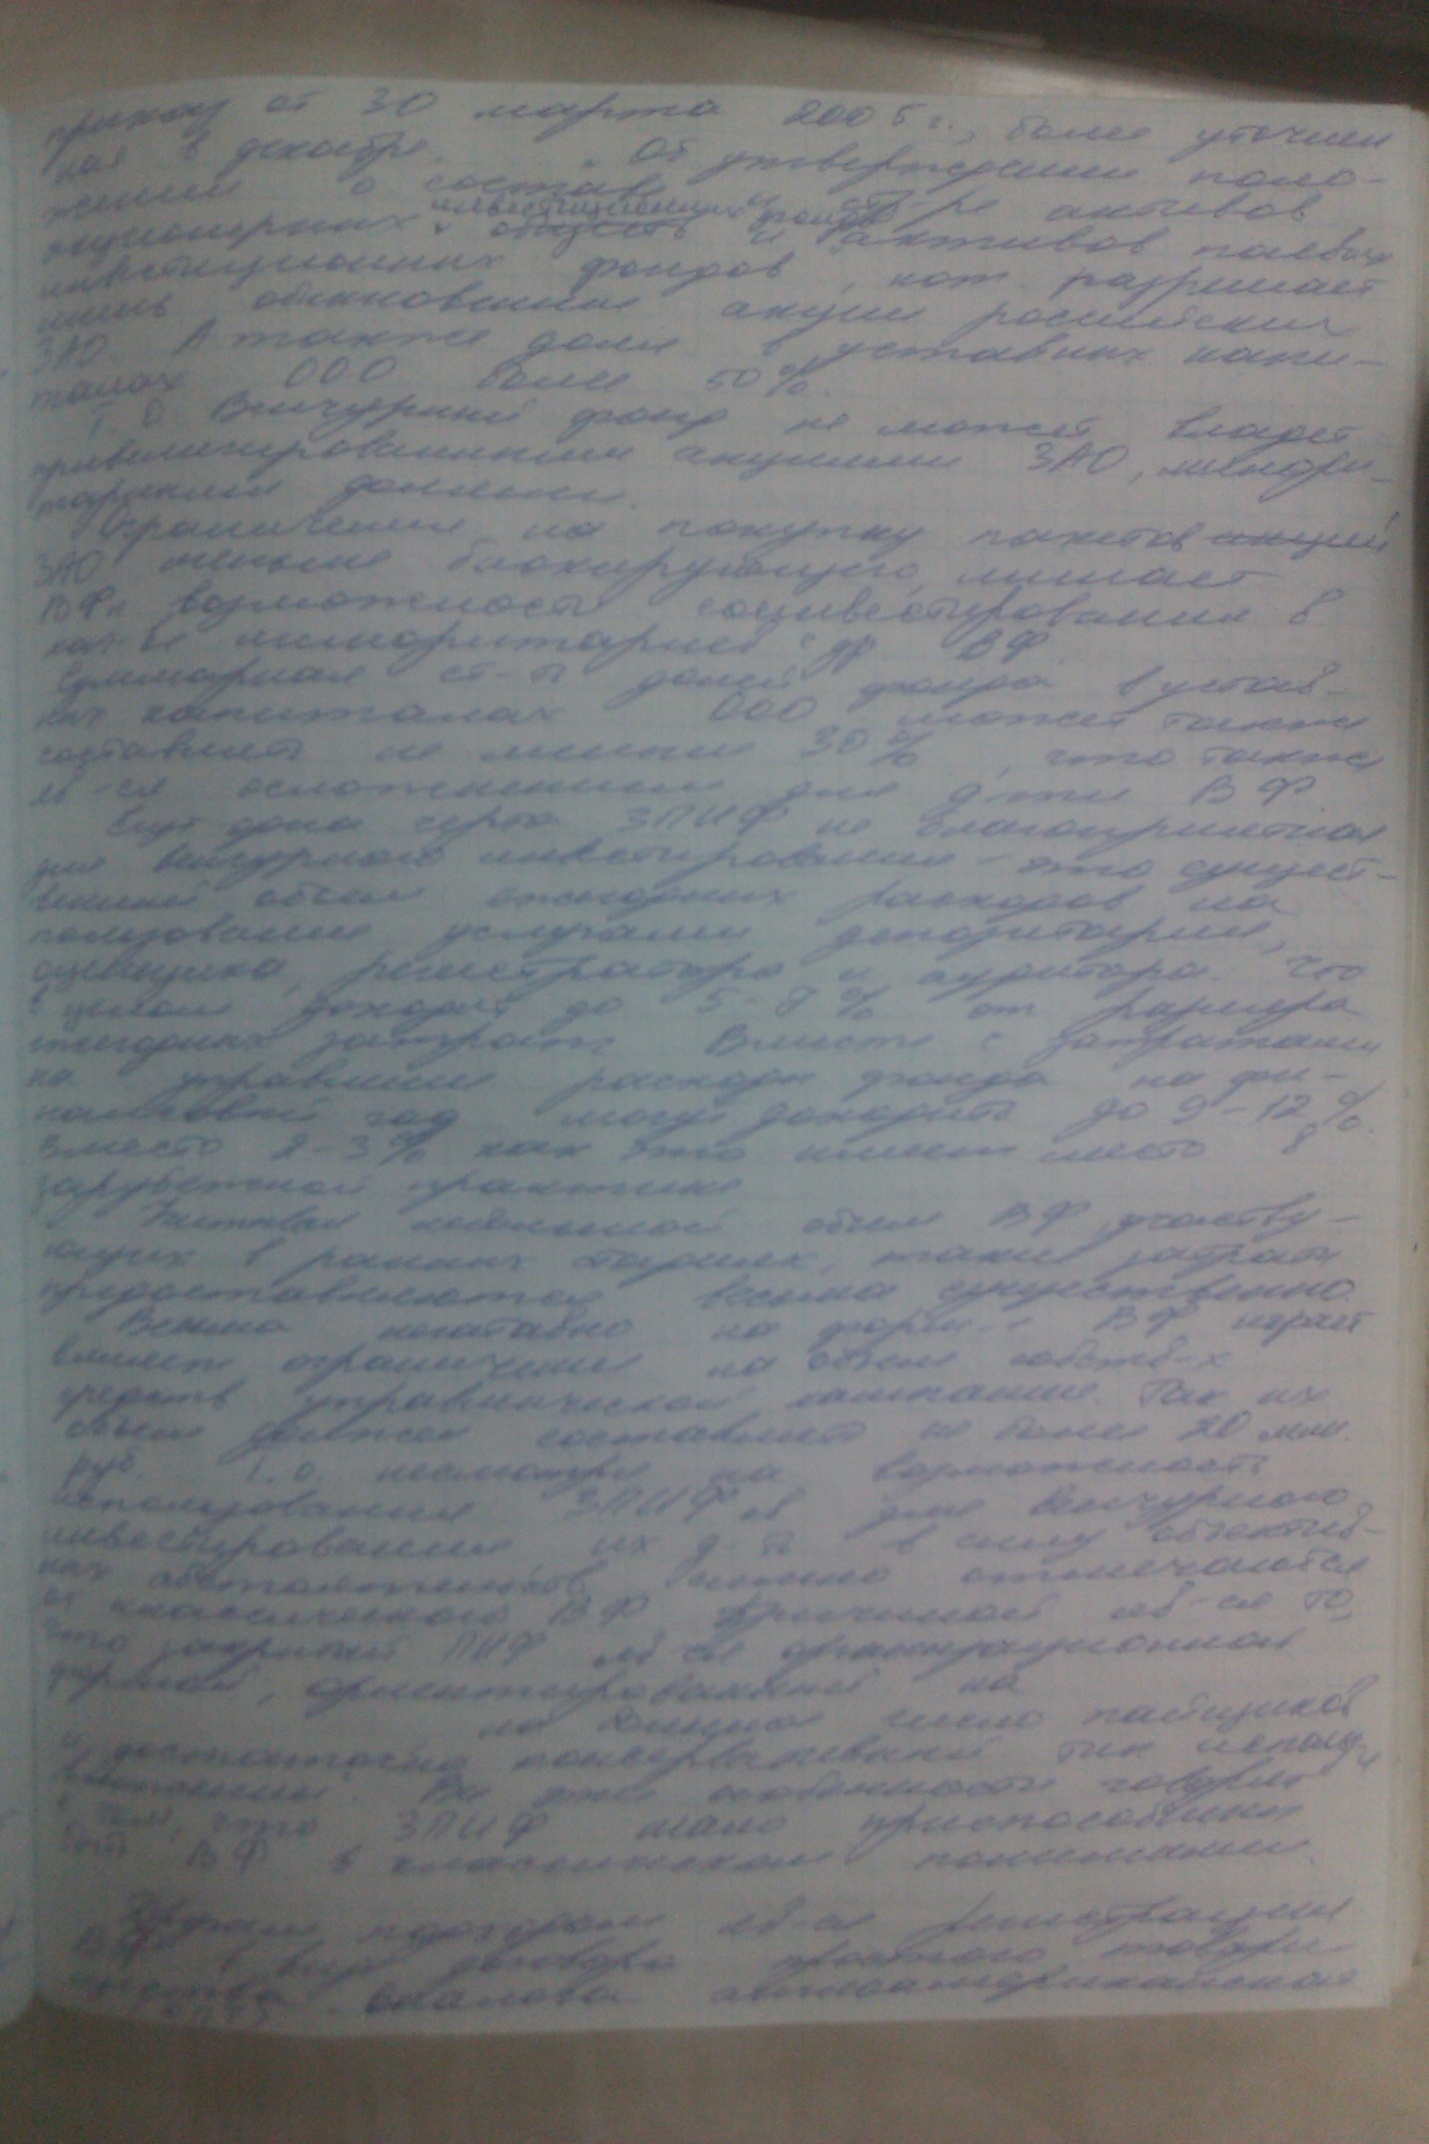 приказ от 30 марта 2005 г., более уточнен
ная в декабре. "Об утверждении поло-
жения о составе и стр-ре активов
акционерных инвестиционных фондов и активов паевых
инвестиционных фондов, кот. разрешает
лишь обыкновенные акции российских
ЗАО. А также доли в уставных капи-
талах ООО более 50%.
Т.о. Венчурный фонд не может владет
привелигированными акциями ЗАО, минори-
тарными долями.
Ограничения на покупку пакетов акций
ЗАО меньше блокирующего, лишает
ВФ возможности соинвестирования в
кач-ве миноритариев с др. ВФ.
Суммарная ст-ть долей фонда в устав-
ных капиталах ООО может также
составлять не менее 30%, что также
яв-ся осложнением для д-ти ВФ.
Еще одна черта ЗПИФ не благоприятная
для венчурного инвестирования - это сущест-
венный объем ежегодных расходов на
пользование услугами депозитария,
оценщика, регистратора и аудитора. Что
в целом доходит до 5-8% от размера
ежегодных затрат. Вместе с затратами
на управление расходы фонда на фи-
нансовый год могут доходить до 9-12%.
вместо 2-3% как это имеет место в
зарубежной практике.
Учитывая небольшой объем ВФ, участву-
ющих в ранних стадиях, такие затраты
предоставляются весьма существенно
Весьма негативно на ВФ играет
влияет ограничение на объем собств-х
средств управленческой компании. Так их
объем должен составлять не более 20 млн.
руб. Т.о. несмотря на возможность
использования ЗПИФов для венчурного
инвестирования их д-ть в силу объектив-
ных обстоятельств сильно отличаются
от классического ВФ. Причиной яв-ся то,
что закрытый ПИФ яв-ся организационной
формой, ориентированной на
на большое число пайщиков
и достаточно консервативный тип
вложений. Все эти особенности говорят
о том, что ЗПИФ мало приспособлены
быть ВФ в классическом понимании.
Другим подходом яв-ся регистрация
ВФ в виде договора простого товари-
щества. англоамериканская